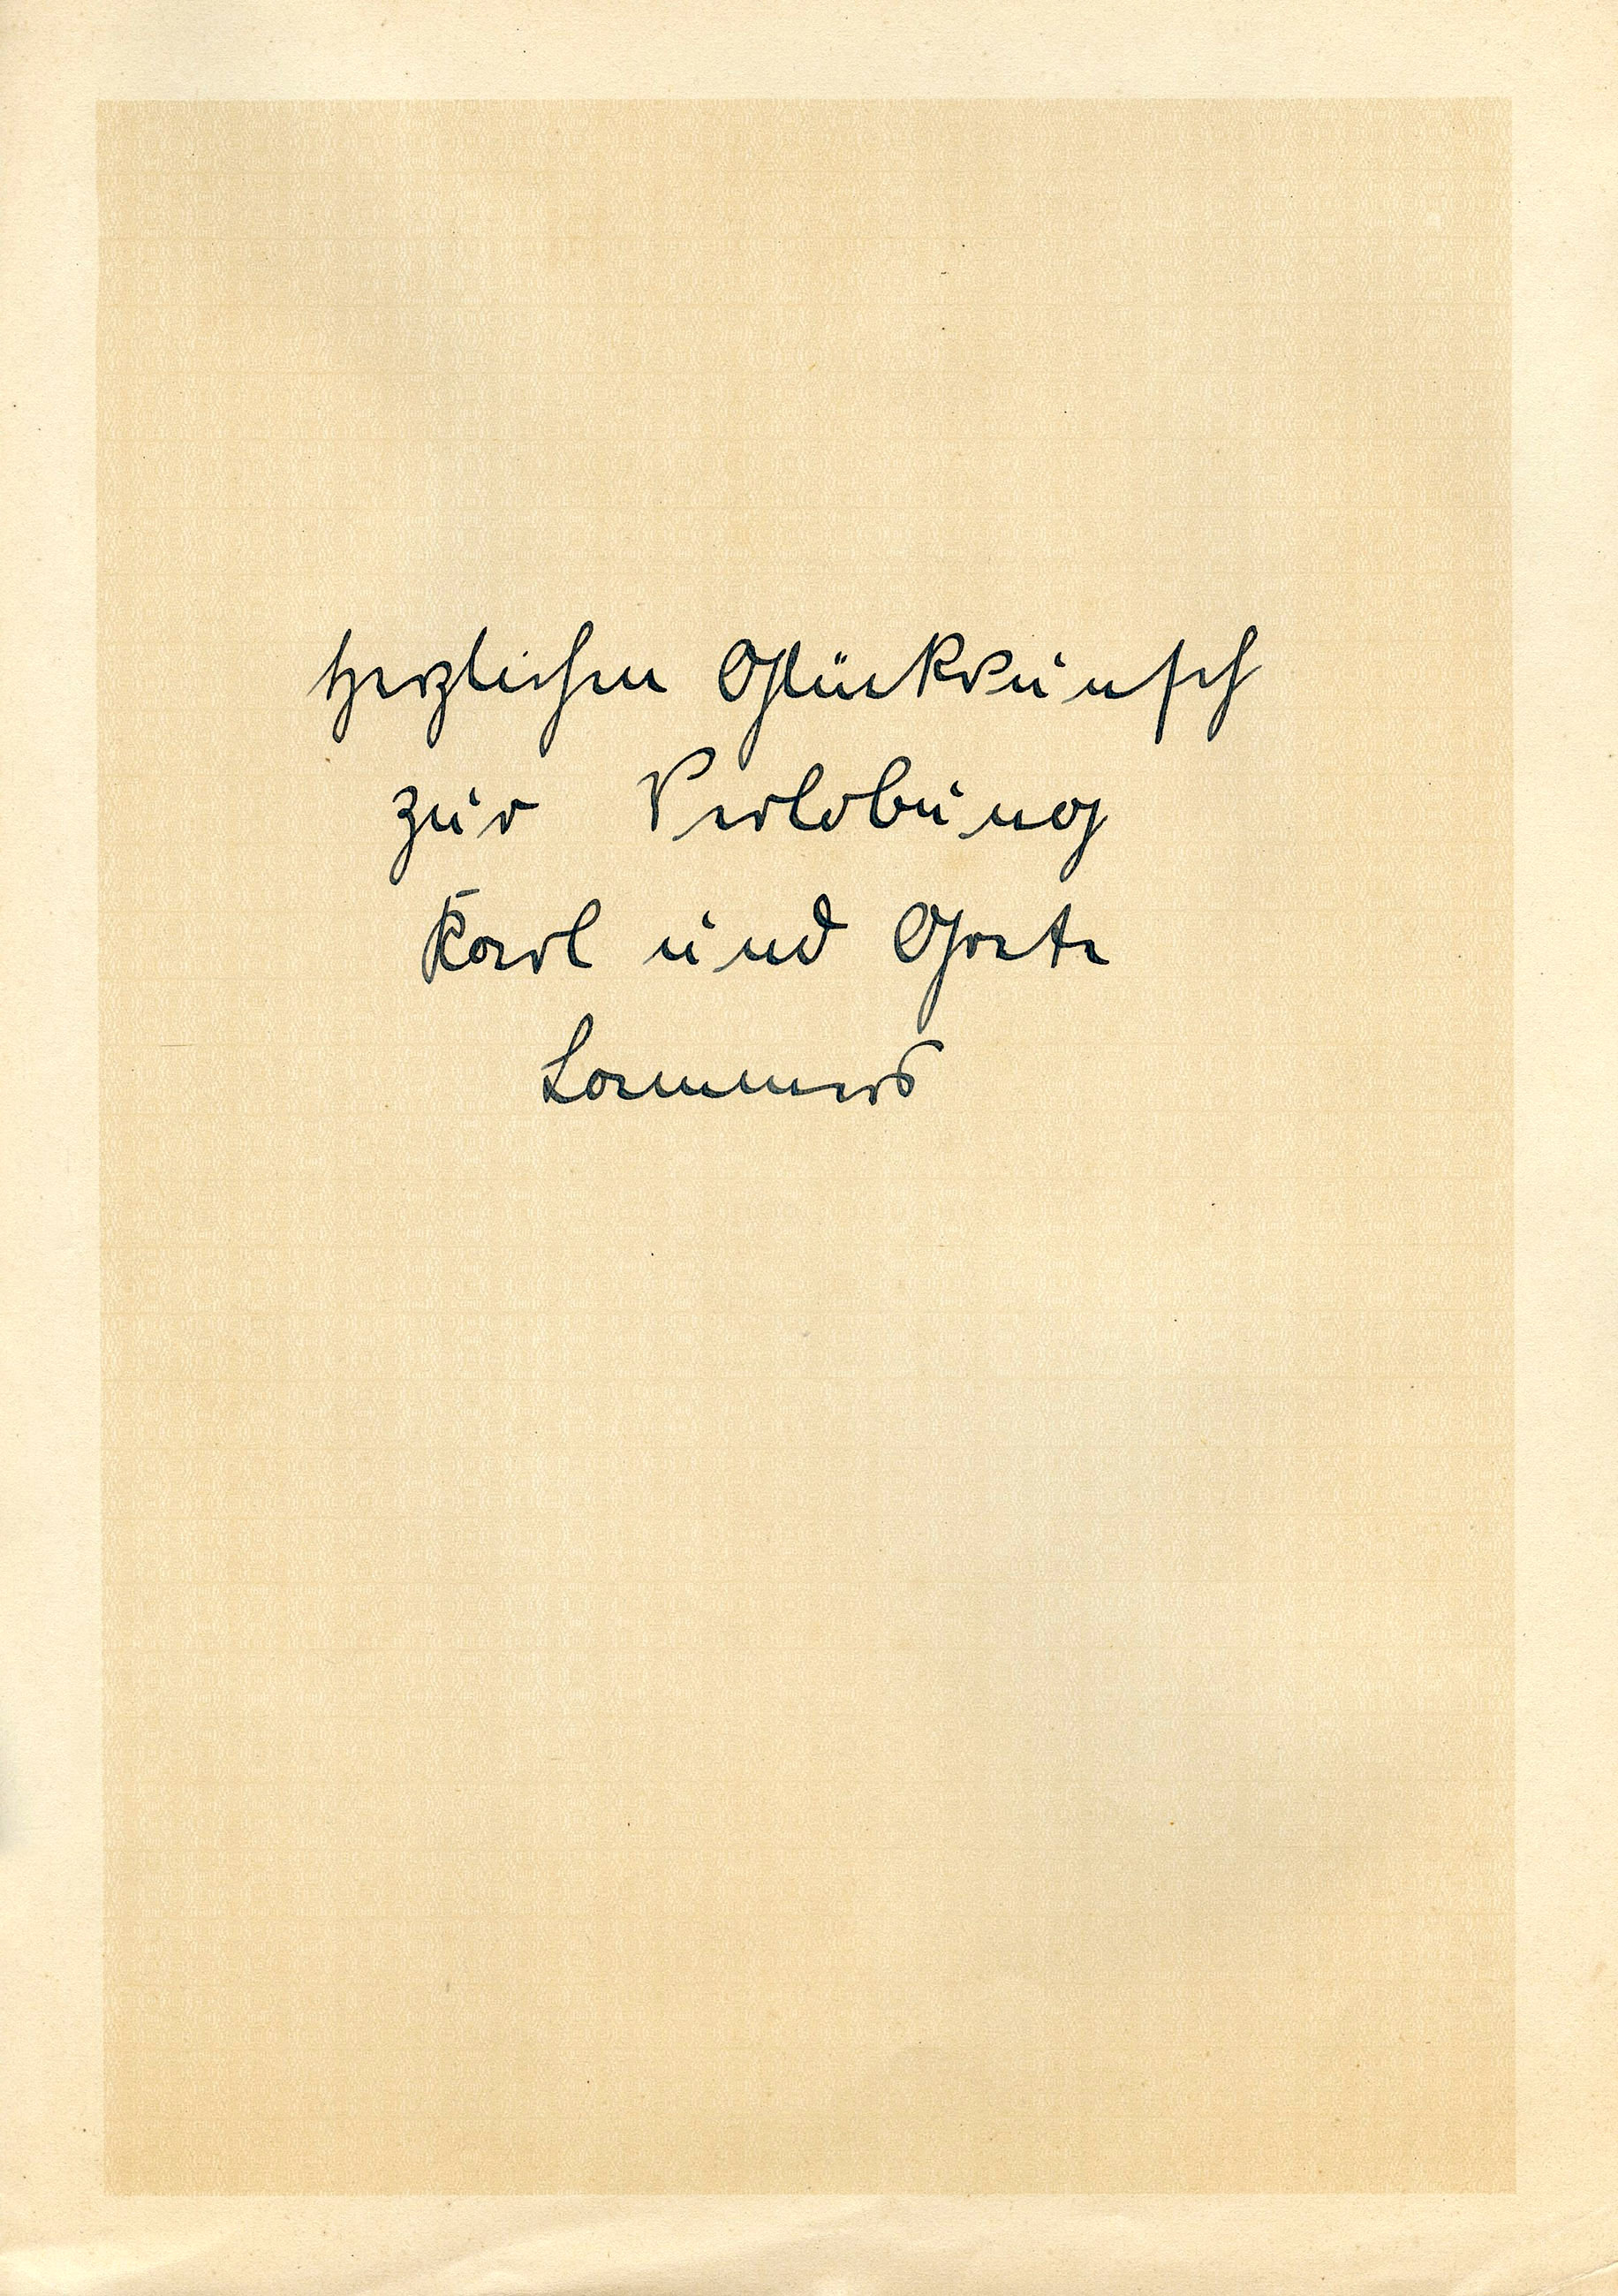 herzlichen Glückwunsch
zur Verlobung
Karl und Grete
Lammers